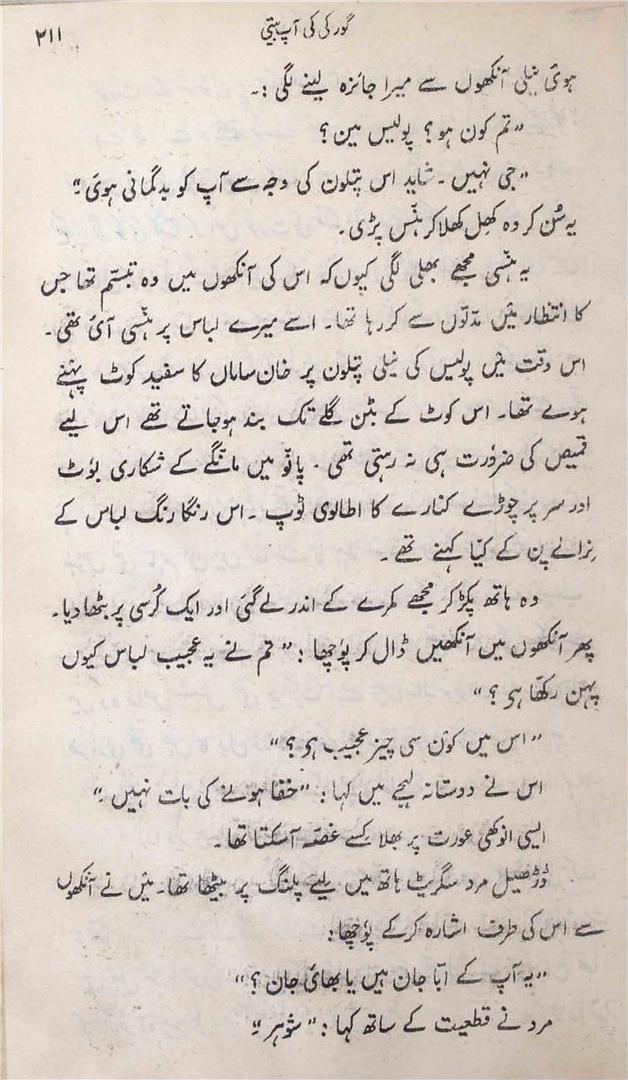 گورکی کی آپ بیتی
۲۱۱
ہوئی نیلی آنکھوں سے میرا جائزہ لینے لگی :۔
”تم کون ہو؟ پولیس مین؟
”جی نہیں۔ شاید اس پتلون کی وجہ سے آپ کو بدگمانی ہوئی۔“
یہ سُن کر وہ کھِل کھلا کر ہنس پڑی۔
یہ ہنسی مجھے بھلی لگی کیوں کہ اس کی آنکھوں میں وہ تبسّم تھا جس
کا انتظار مَیں مدّتوں سے کر رہا تھا۔ اسے میرے لباس پر ہنسی آئی تھی۔
اس وقت مَیں پولیس کی نیلی پتلون پر خان ساماں کا سفید کوٹ پہنے
ہوے تھا۔ اس کوٹ کے بٹن گلے تک بند ہوجاتے تھے اس لیے
قمیص کی ضرورت ہی نہ رہتی تھی۔ پانو میں مانگے کے شکاری بوٗٹ
اور سر پر چوڑے کنارے کا اطالوی ٹوپ۔ اس رنگا رنگ لباس کے
نِرالے پن کے کیا کہنے تھے۔
وہ ہاتھ پکڑ کر مجھے کمرے کے اندر لے گئی اور ایک کُرسی پر بٹھا دیا۔
پھر آنکھوں میں آنکھیں ڈال کر پوٗچھا :” تم نے یہ عجیب لباس کیوں
پہن رکھّا ہی؟“
”اس میں کون سی چیز عجیب ہی؟“
اس نے دوستانہ لہجے میں کہا :”خفا ہونے کی بات نہیں۔“
ایسی انوکھی عورت پر بھلا کِسے غصّہ آسکتا تھا۔
دُڑھیل مرد سگریٹ ہاتھ میں لیے پلنگ پر بیٹھا تھا۔ مَیں نے آنکھوں
سے اس کی طرف اشارہ کرکے پوٗچھا :
”یہ آپ کے ابّا جان ہیں یا بھائی جان؟“
مرد نے قطعیت کے ساتھ کہا :”شوہر۔“